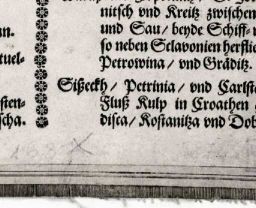 nitsch vnd Kreitz zwischen
und Sau / beyde Schiff-
zn. so neben Sclavonien herflie
tuel- Petrowina / vnd Gräditz.
Sißeckh / Petrinia / vnd Carlst
sten- Fluß Kulp in Croathen
scha. disca / Kostanitza vnd Dob